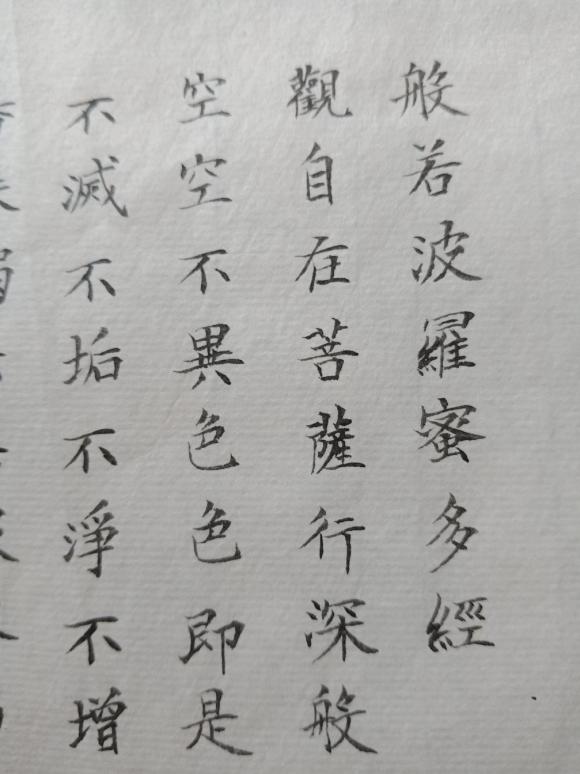 般若波羅蜜多經
觀自在菩薩行深般
空空不異色色即是
不滅不垢不淨不增